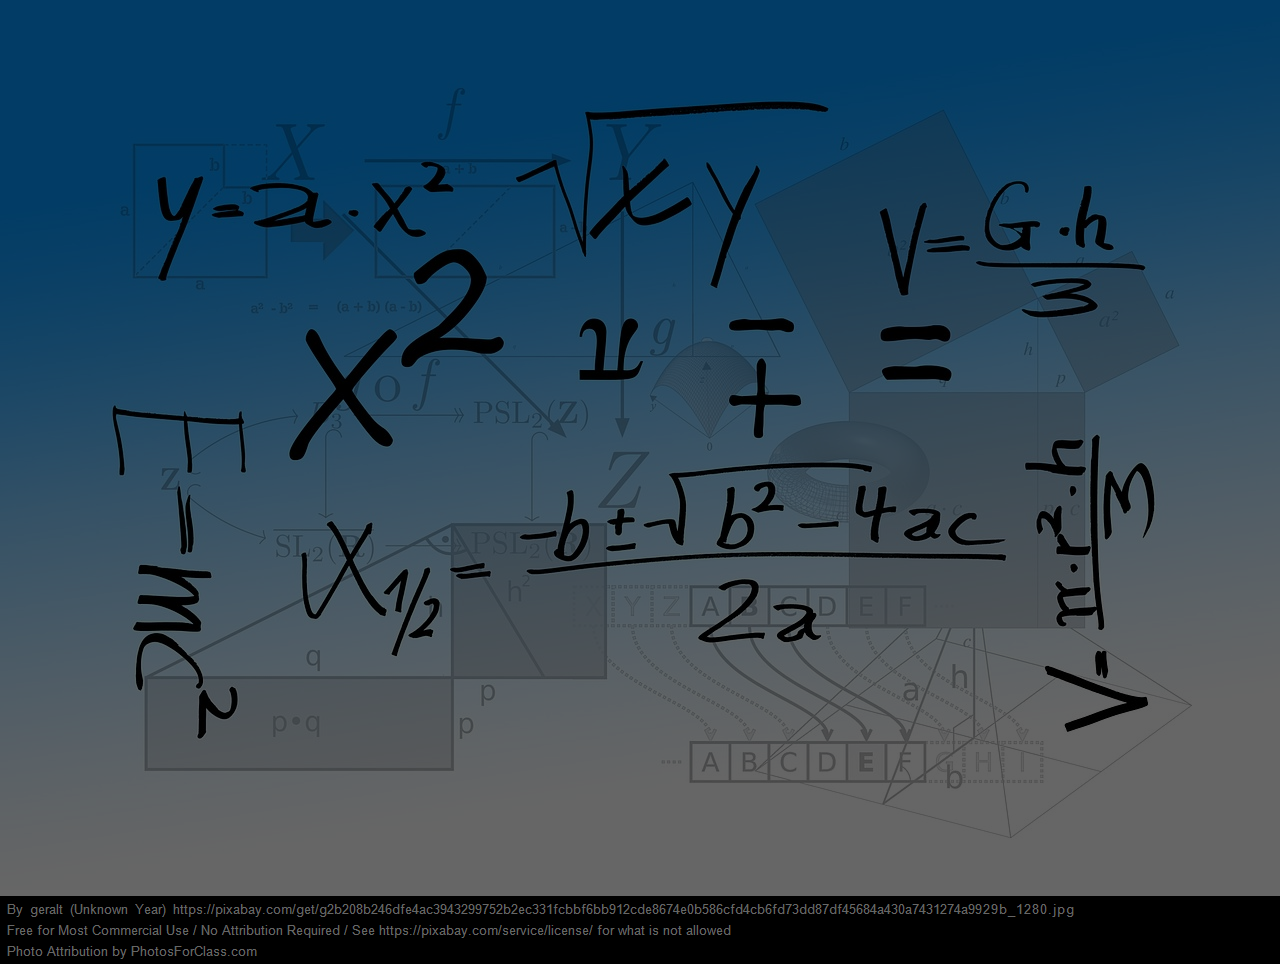 f
X
Y
b
a + b
b
y = a · x²
√xy
b
b
a
a
a
V = G · h / 3
a² - b² = (a + b) (a - b)
x²
π
g
- +
=
a
a²
h
p
o f
PSL₂(Z)
E = mc²
Z
z
0
x₁/₂ = -b ± √b² - 4ac / 2a
V = π · r² · h / 3
SL₂(R)
PSL₂(
h²
X Y Z A B C D E F
q
c
p
a
h
p • q
p
A B C D E F G H I
b
By geralt (Unknown Year) https://pixabay.com/get/g2b208b246dfe4ac3943299752b2ec331fcbbf6bb912cde8674e0b586cfd4cb6fd73dd87df45684a430a7431274a9929b_1280.jpg
Free for Most Commercial Use / No Attribution Required / See https://pixabay.com/service/license/ for what is not allowed
Photo Attribution by PhotosForClass.com